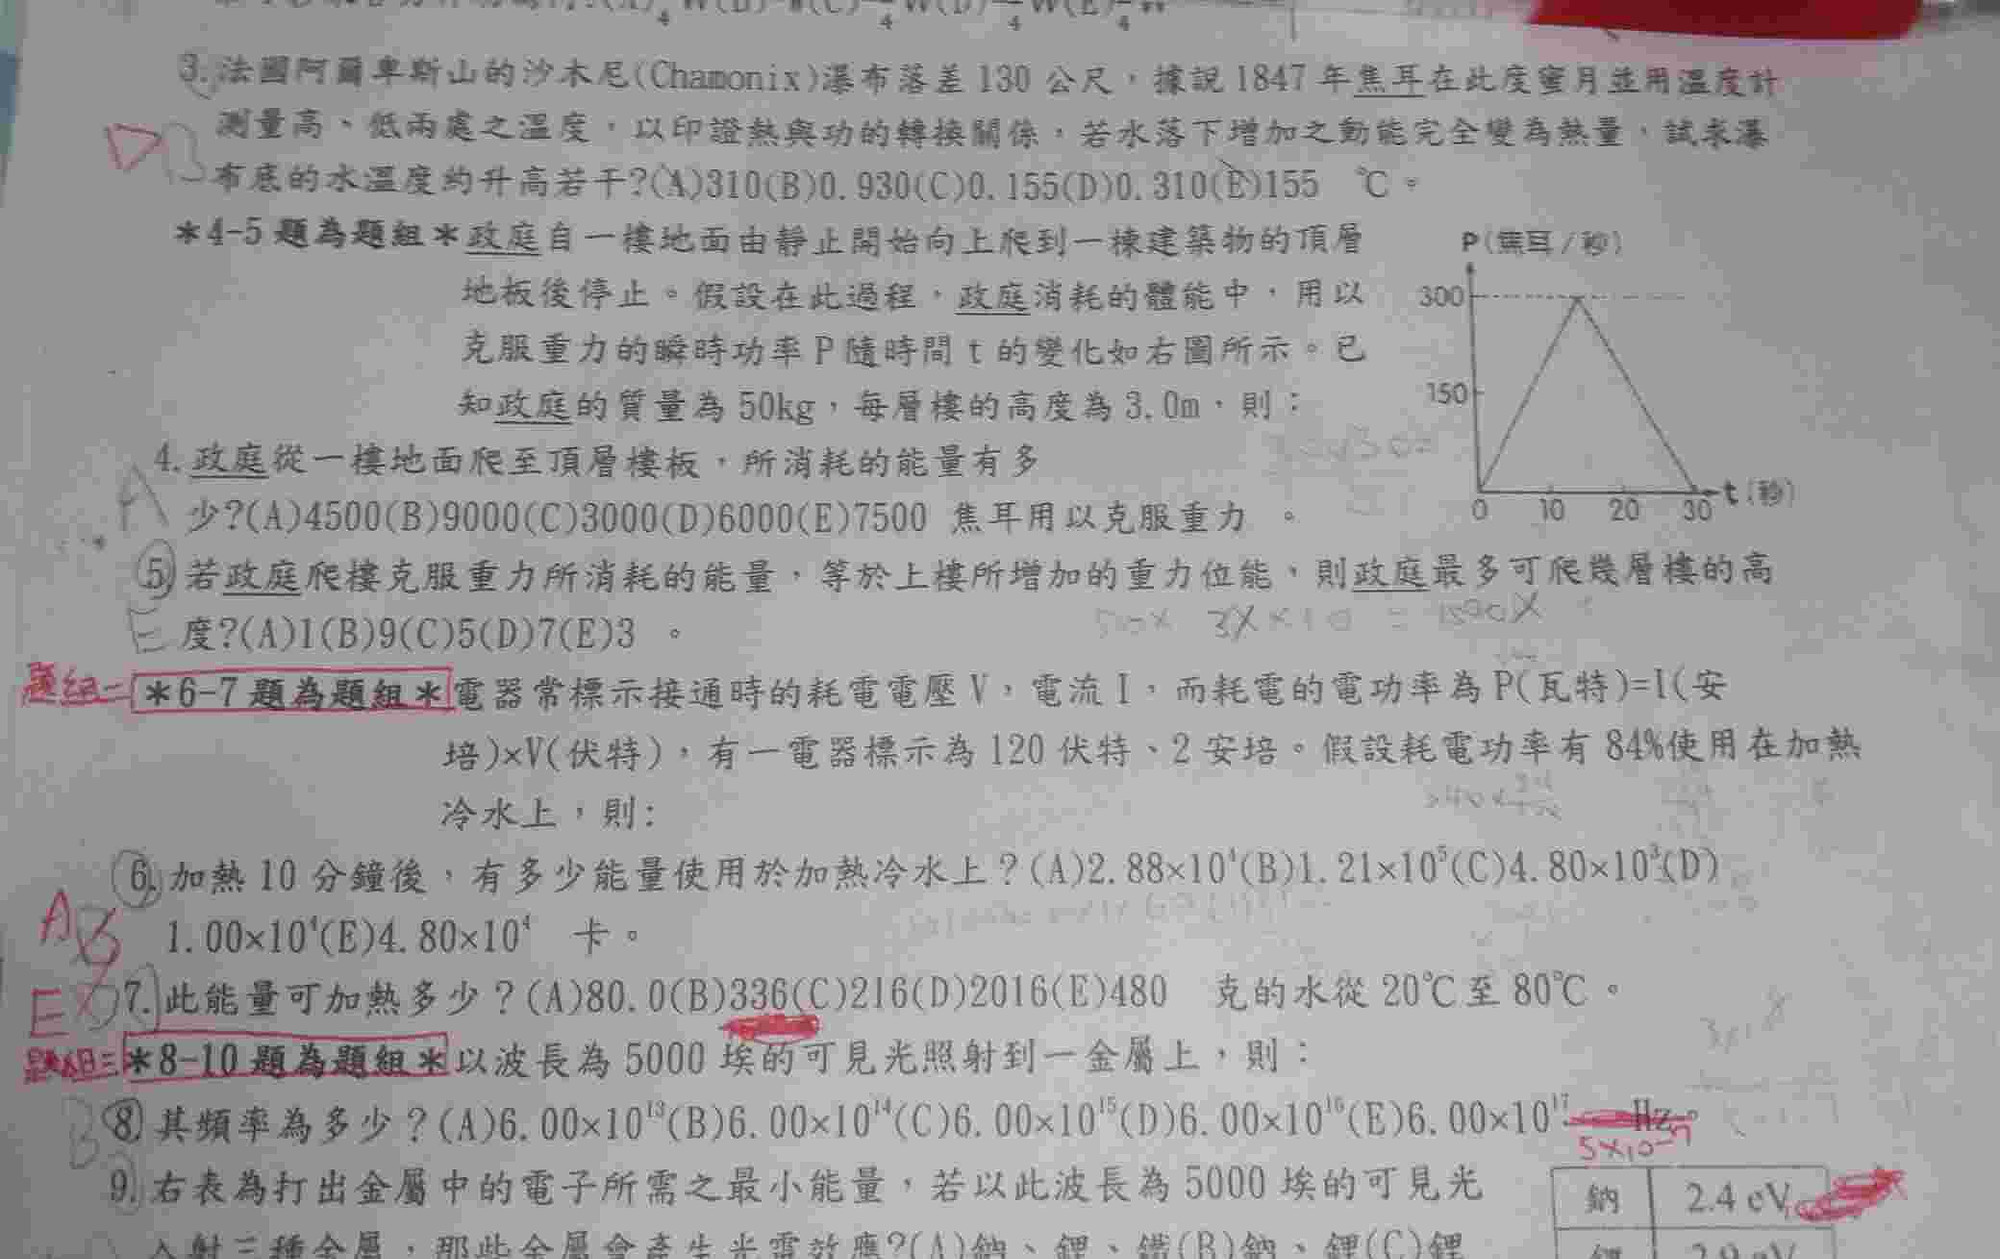 3.法國阿爾卑斯山的沙木尼(Chamonix)瀑布落差130公尺，據說1847年焦耳在此度蜜月並用溫度計
測量高、低兩處之溫度，以印證熱與功的轉換關係，若水落下增加之動能完全變為熱量，試求瀑
布底的水溫度約升高若干?(A)310(B)0.930(C)0.155(D)0.310(E)155 ℃。
*4-5題為題組*政庭自一樓地面由靜止開始向上爬到一棟建築物的頂層
地板後停止。假設在此過程，政庭消耗的體能中，用以
克服重力的瞬時功率P隨時間t的變化如右圖所示。已
知政庭的質量為50kg，每層樓的高度為3.0m，則：
P(焦耳/秒)
300
150
0 10 20 30 t(秒)
4.政庭從一樓地面爬至頂層樓板，所消耗的能量有多
少?(A)4500(B)9000(C)3000(D)6000(E)7500 焦耳用以克服重力 。
A
5.若政庭爬樓克服重力所消耗的能量，等於上樓所增加的重力位能，則政庭最多可爬幾層樓的高
度?(A)1(B)9(C)5(D)7(E)3 。
E
50× 3X×10 = 1500X
題組二*6-7題為題組*電器常標示接通時的耗電電壓V，電流I，而耗電的電功率為P(瓦特)=I(安
培)×V(伏特)，有一電器標示為120伏特、2安培。假設耗電功率有84%使用在加熱
冷水上，則:
6.加熱10分鐘後，有多少能量使用於加熱冷水上？(A)2.88×10⁴(B)1.21×10⁵(C)4.80×10³(D)
1.00×10⁴(E)4.80×10⁴ 卡。
A
7.此能量可加熱多少？(A)80.0(B)336(C)216(D)2016(E)480 克的水從20℃至80℃。
E
題組三*8-10題為題組*以波長為5000埃的可見光照射到一金屬上，則：
8.其頻率為多少？(A)6.00×10¹³(B)6.00×10¹⁴(C)6.00×10¹⁵(D)6.00×10¹⁶(E)6.00×10¹⁷ Hz。
B
5×10⁻⁷
9.右表為打出金屬中的電子所需之最小能量，若以此波長為5000埃的可見光
鈉 2.4 eV
入射三種金屬，那些金屬會產生光電效應?(A)鈉、鋰、鐵(B)鈉、鋰(C)鋰